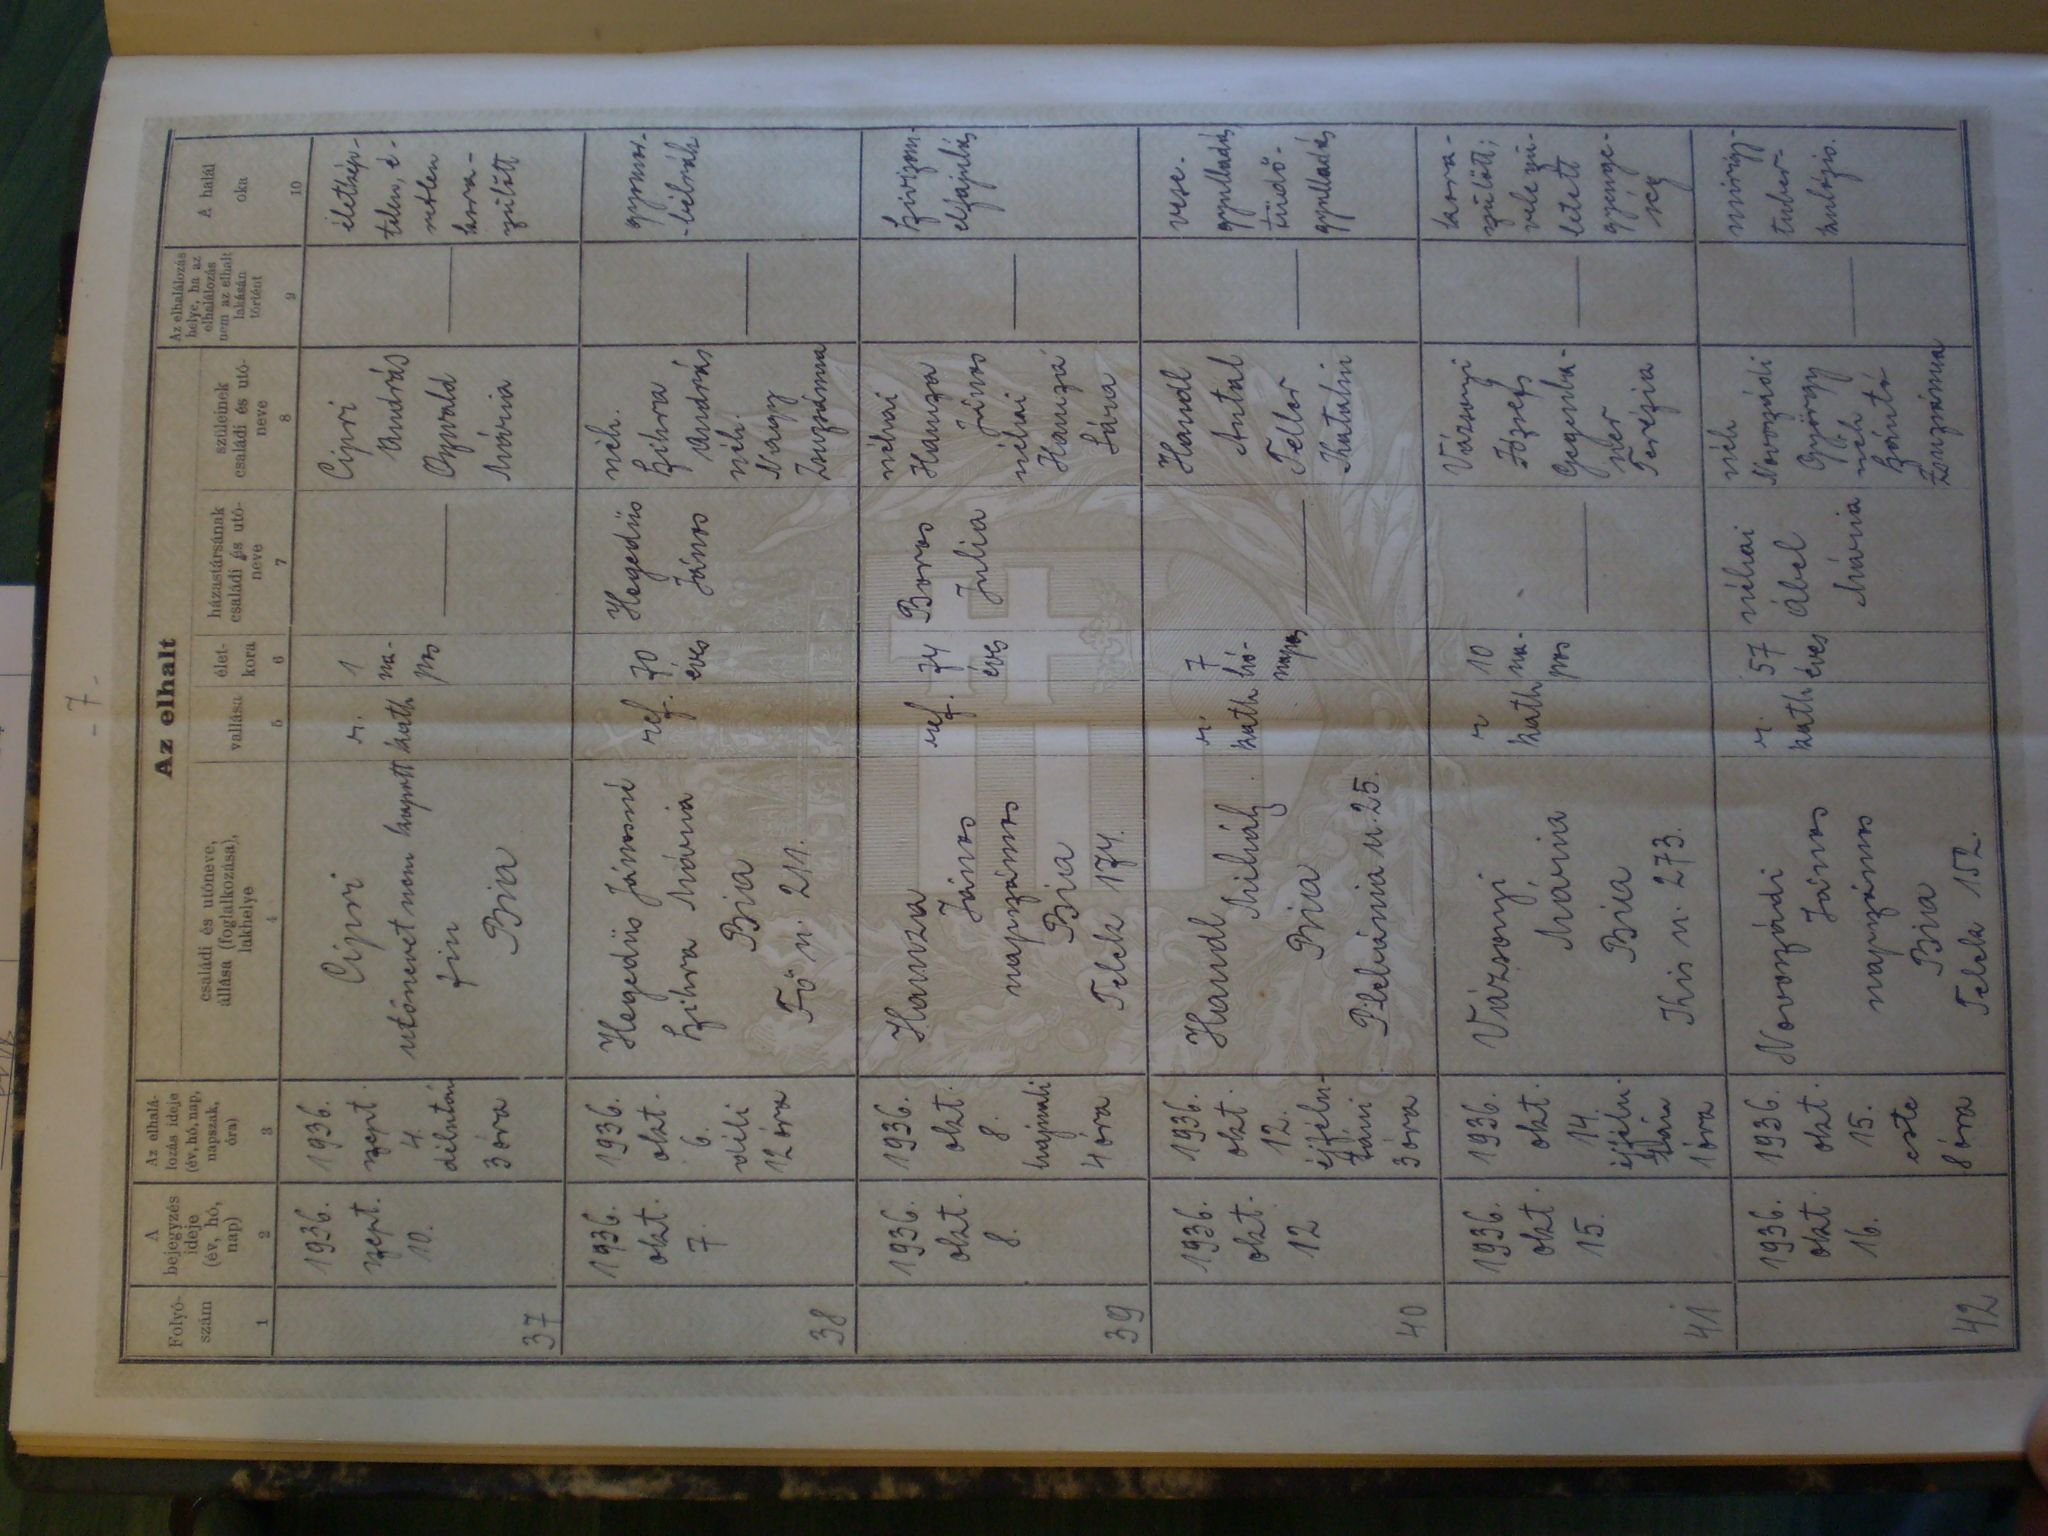 - 7 -
Az elhalt
Folyó-
szám
A
bejegyzés
ideje
(év, hó,
nap)
Az elhalá-
lozás ideje
(év, hó, nap,
napszak,
óra)
családi és utóneve,
állása (foglalkozása),
lakhelye
vallása
élet-
kora
házastársának
családi és utó-
neve
szüleinek
családi és utó-
neve
Az elhalálozás
helye, ha az
elhalálozás
nem az elhalt
lakásán
történt
A halál
oka
1
2
3
4
5
6
7
8
9
10
37
1936.
szept.
10.
1936.
szept.
4.
délután
3 óra
Cipri
utónevet nem kapott
fiu
Bia
r.
kath
1
na-
pos
Cipri
András
Oszvald
Mária
életkép-
telen, é-
retlen
kora-
szülött
38
1936.
okt.
7.
1936.
okt.
6.
déli
12 óra
Hegedüs Jánosné
Szihra Mária
Bia
Fő u. 211.
ref.
70
éves
Hegedüs
János
néh.
Szihra
András
néh.
Nagy
Zsuzsánna
gyomor-
39
1936.
okt.
8.
1936.
okt.
8.
hajnali
4 óra
Hamza
János
napszámos
Bia
Telek 174.
ref.
74
éves
Boros
Julia
néhai
Hamza
János
néhai
Hamza
Sára
szivizom-
elfajulás
40
1936.
okt.
12
1936.
okt.
12.
éjfélu-
táni
3 óra
Handl
Mihály
Bia
Plebánia u. 25.
r.
kath
7
hó-
napos
Handl
Antal
Teller
Katalin
vese-
gyulladás
tüdő-
gyulladás
41
1936.
okt.
15.
1936.
okt.
14.
éjfélu-
tán
1 óra
Vázsonyi
Mária
Bia
Kis u. 273.
r
kath
10
na-
pos
Vázsonyi
József
Gegenba-
uer
Terézia
kora-
szülött;
vele szü-
letett
gyenge-
ség
42
1936.
okt.
16.
1936.
okt.
15.
este
8 óra
Novozádi
János
napszámos
Bia
Telek 152.
r.
kath
57
éves
néhai
Ábel
Mária
néh
Novozádi
György
néh
Szántó
Zsuzsánna
tuber-
kulózis.